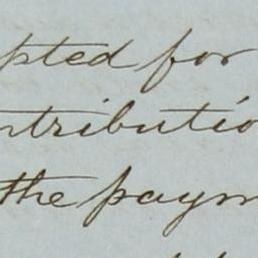 pted for
ntributio
the paym